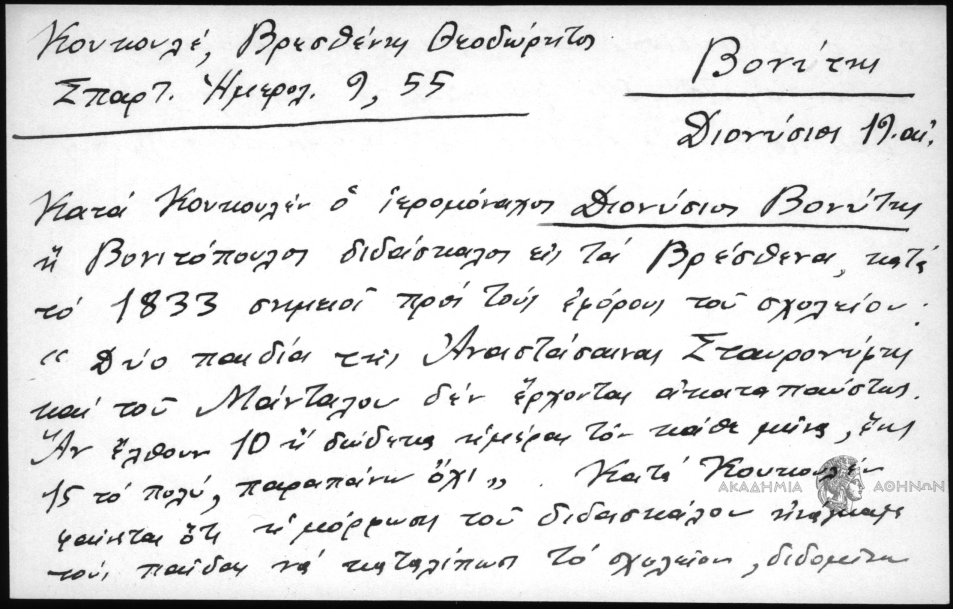 Κουκουλέ, Βρεσθένης Θεοδώρητος
Σπαρτ. Ἡμερολ. 9, 55
Βονίτης
Διονύσιος 19. αἰ.
Κατά Κουκουλέν ὁ ἱερομόναχος Διονύσιος Βονίτης
ἤ Βονιτόπουλος διδάσκαλος εἰς τά Βρέσθενα, κατά
τό 1833 σημειοῖ πρός τούς ἐφόρους τοῦ σχολείου:
"Δύο παιδία τῆς Ἀναστάσαινας Σταυρονύφης
καί τοῦ Μάνταλου δέν ἔρχονται ἀκαταπαύστως.
Ἄν ἔλθουν 10 ἤ δώδεκα ἡμέρας τόν κάθε μῆνα, ἕως
15 τό πολύ, παραπάνω ὄχι". Κατά Κουκουλέν
φαίνεται ὅτι ἡ μόρφωσις τοῦ διδασκάλου ἠνάγκασε
τούς παῖδας νά καταλίπωσι τό σχολεῖον, διδομένου
ΑΚΑΔΗΜΙΑ ΑΘΗΝΩΝ